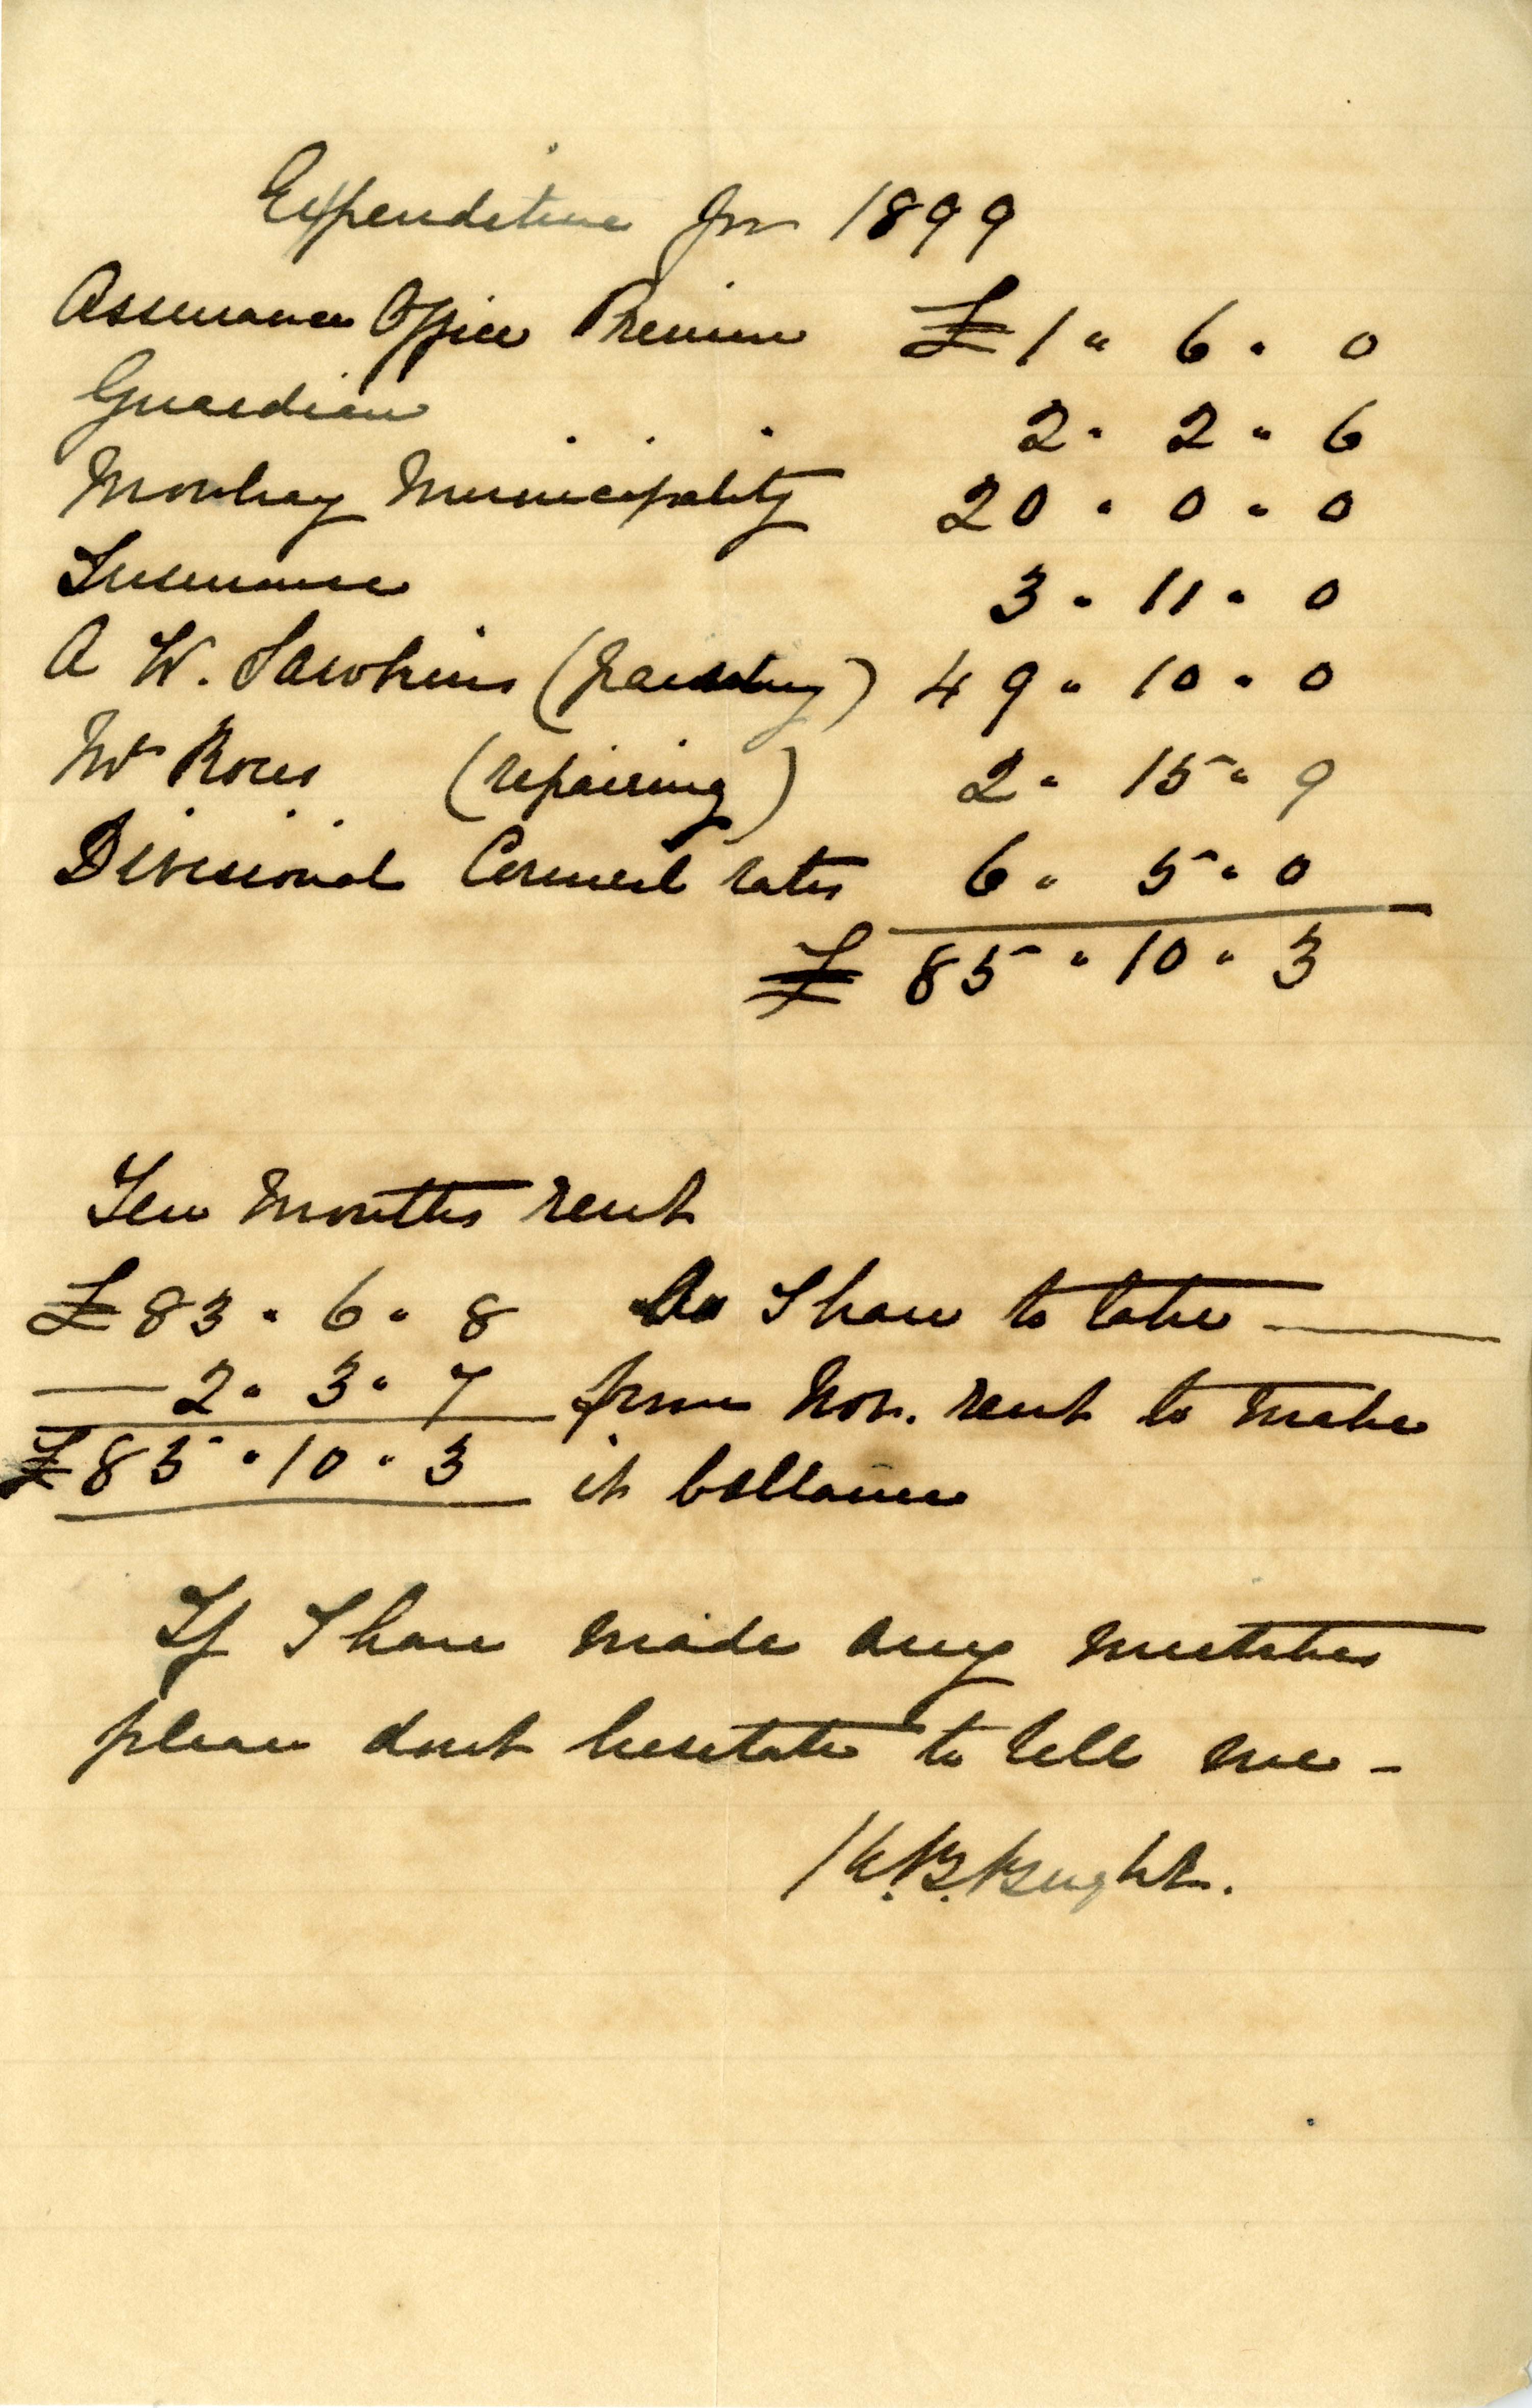 Expenditure for 1899
Assurance Office Premium £1 " 6 " 0
Guardian 2 " 2 " 6
Mowbray Municipality 20 " 0 " 0
Insurance 3 " 11 " 0
A W. Sawkins (painting) 49 " 10 " 0
Mr (repairing) 2 " 15 " 9
Divisional Council rates 6 " 5 " 0
£ 85 " 10 " 3
Ten months rent
£83 " 6 " 8 So I have to take —
— 2 " 3 " 7 from Nov. rent to make
£85 " 10 " 3 it ballance
If I have made any mistakes
please dont hesitate to tell me -